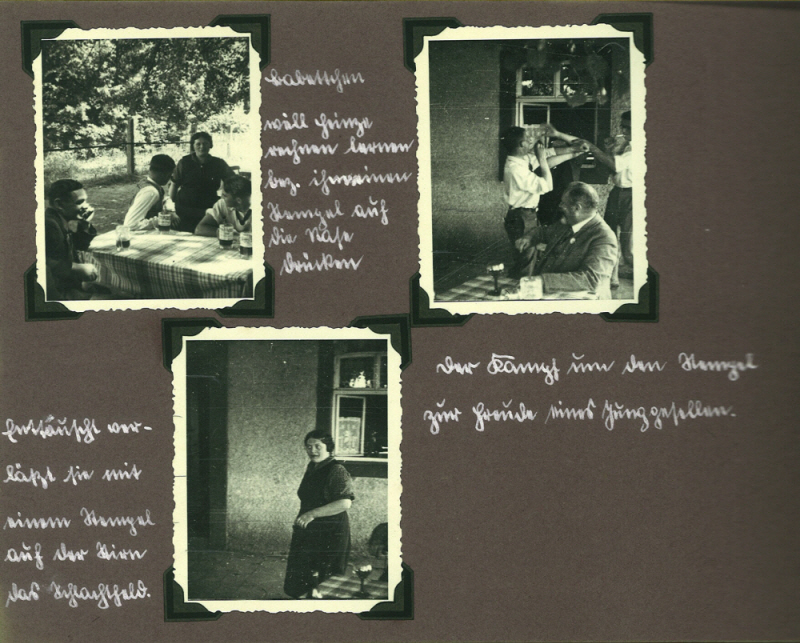 Babettchen
will Heinze
rechnen lernen
bez. ihm einen
Stempel auf
die Nase
drücken
Der Kampf um den Stempel
zur Freude eines Junggesellen.
Enttäuscht ver-
läßt sie mit
einem Stempel
auf der Stirn
das Schlachtfeld.